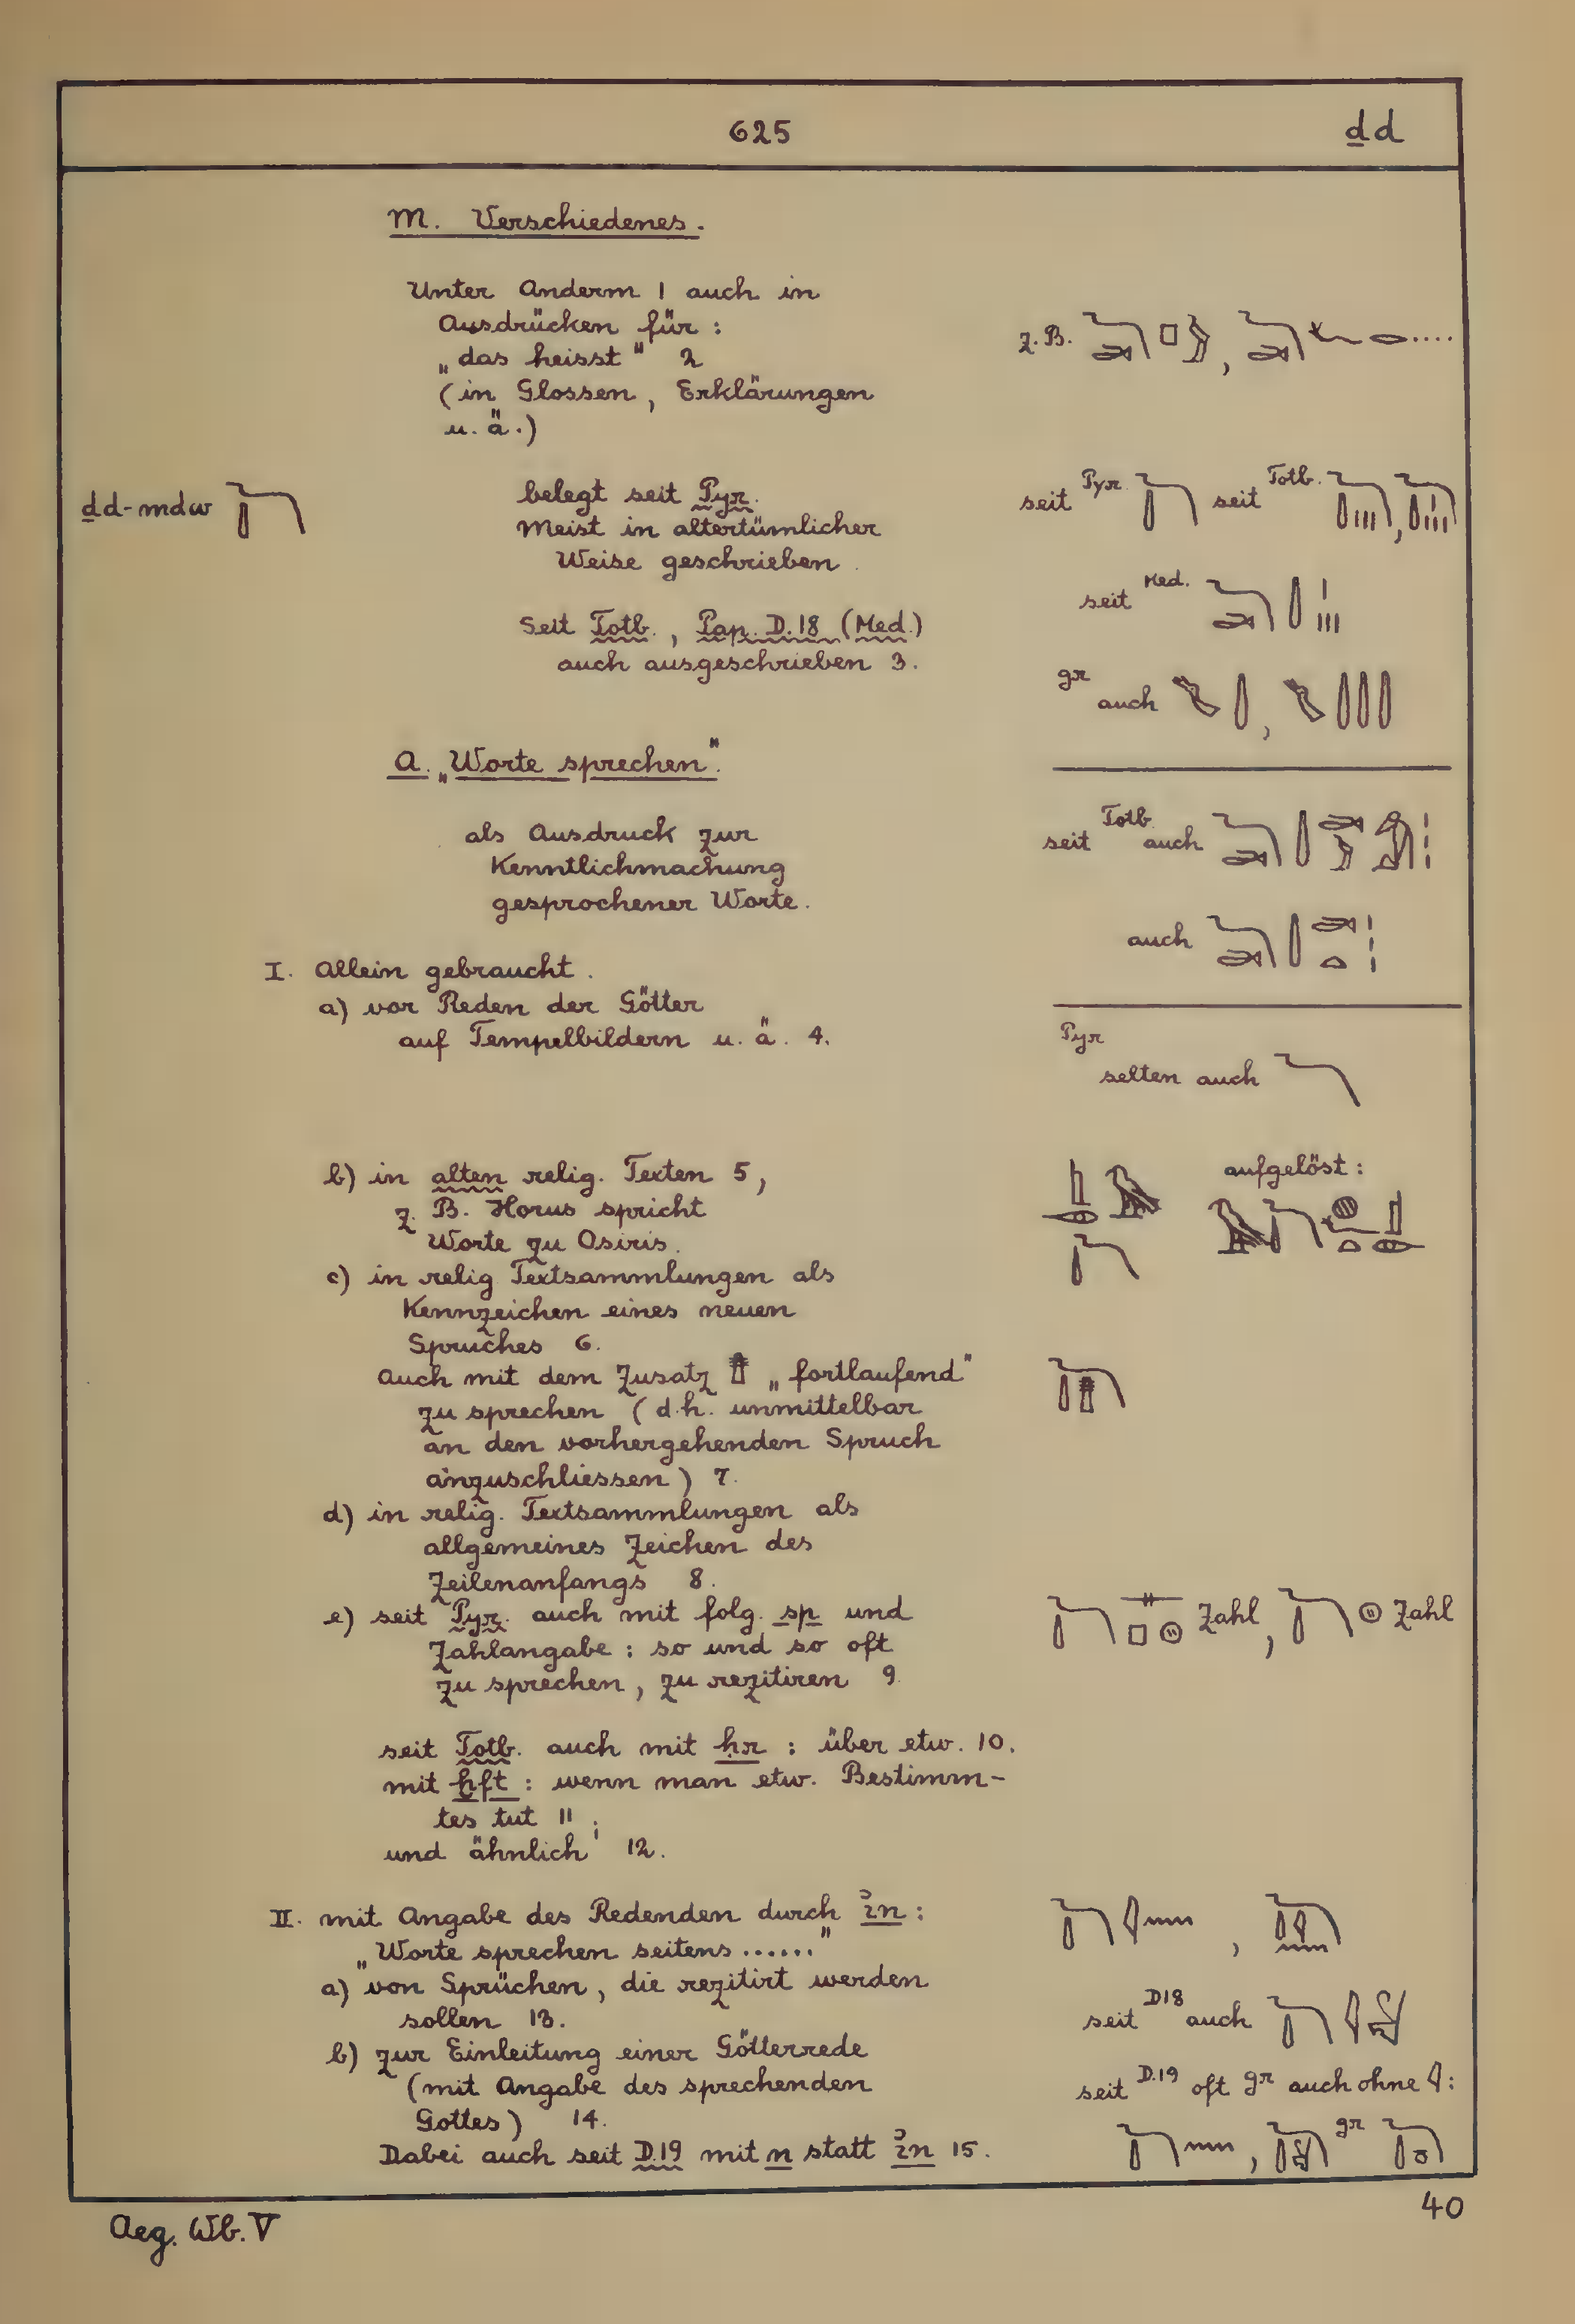 625
ḏd
M. Verschiedenes.
Unter Anderm 1 auch in
Ausdrücken für:
„das heisst" 2
(in Glossen, Erklärungen
u. ä.)
z. B. 𓆓𓂧𓊪𓃀, 𓆓𓂧𓆑𓂋....
ḏd-mdw 𓆓𓌃
belegt seit Pyr.
Meist in altertümlicher
Weise geschrieben.
Seit Totb., Pap. D.18 (Med.)
auch ausgeschrieben 3.
seit Pyr. 𓆓𓌃 seit Totb. 𓆓𓌃𓏥, 𓆓𓌃𓏤𓏥
seit Med. 𓆓𓂧𓌃𓏤𓏥
gr auch
A. „Worte sprechen".
als Ausdruck zur
Kenntlichmachung
gesprochener Worte.
seit Totb. auch 𓆓𓂧𓌃𓂧𓅱𓀁𓏥
auch 𓆓𓂧𓌃𓂧𓏏𓏥
I. Allein gebraucht.
a) vor Reden der Götter
auf Tempelbildern u. ä. 4.
Pyr
selten auch 𓆓
b) in alten relig. Texten 5,
z. B. Horus spricht
Worte zu Osiris.
aufgelöst:
c) in relig Textsammlungen als
Kennzeichen eines neuen
Spruches 6.
Auch mit dem Zusatz „fortlaufend"
zu sprechen (d.h. unmittelbar
an den vorhergehenden Spruch
anzuschliessen) 7.
d) in relig. Textsammlungen als
allgemeines Zeichen des
Zeilenanfangs 8.
e) seit Pyr. auch mit folg. sp und
Zahlangabe: so und so oft
zu sprechen, zu rezitiren 9.
𓆓𓌃𓋴𓊪𓊗 Zahl, 𓆓𓌃𓊗 Zahl
seit Totb. auch mit ḥr: über etw. 10.
mit ḫft: wenn man etw. Bestimm-
tes tut 11;
und ähnlich 12.
II. mit Angabe des Redenden durch ỉn:
„Worte sprechen seitens ......"
a) von Sprüchen, die rezitirt werden
sollen 13.
b) zur Einleitung einer Götterrede
(mit Angabe des sprechenden
Gottes) 14.
Dabei auch seit D.19 mit n statt ỉn 15.
𓆓𓌃𓇋𓈖, 𓆓𓌃𓇋𓈖
seit D18 auch 𓆓𓌃𓇋
seit D.19 oft gr auch ohne 𓇋:
𓆓𓌃𓈖, gr
Aeg. Wb. V
40